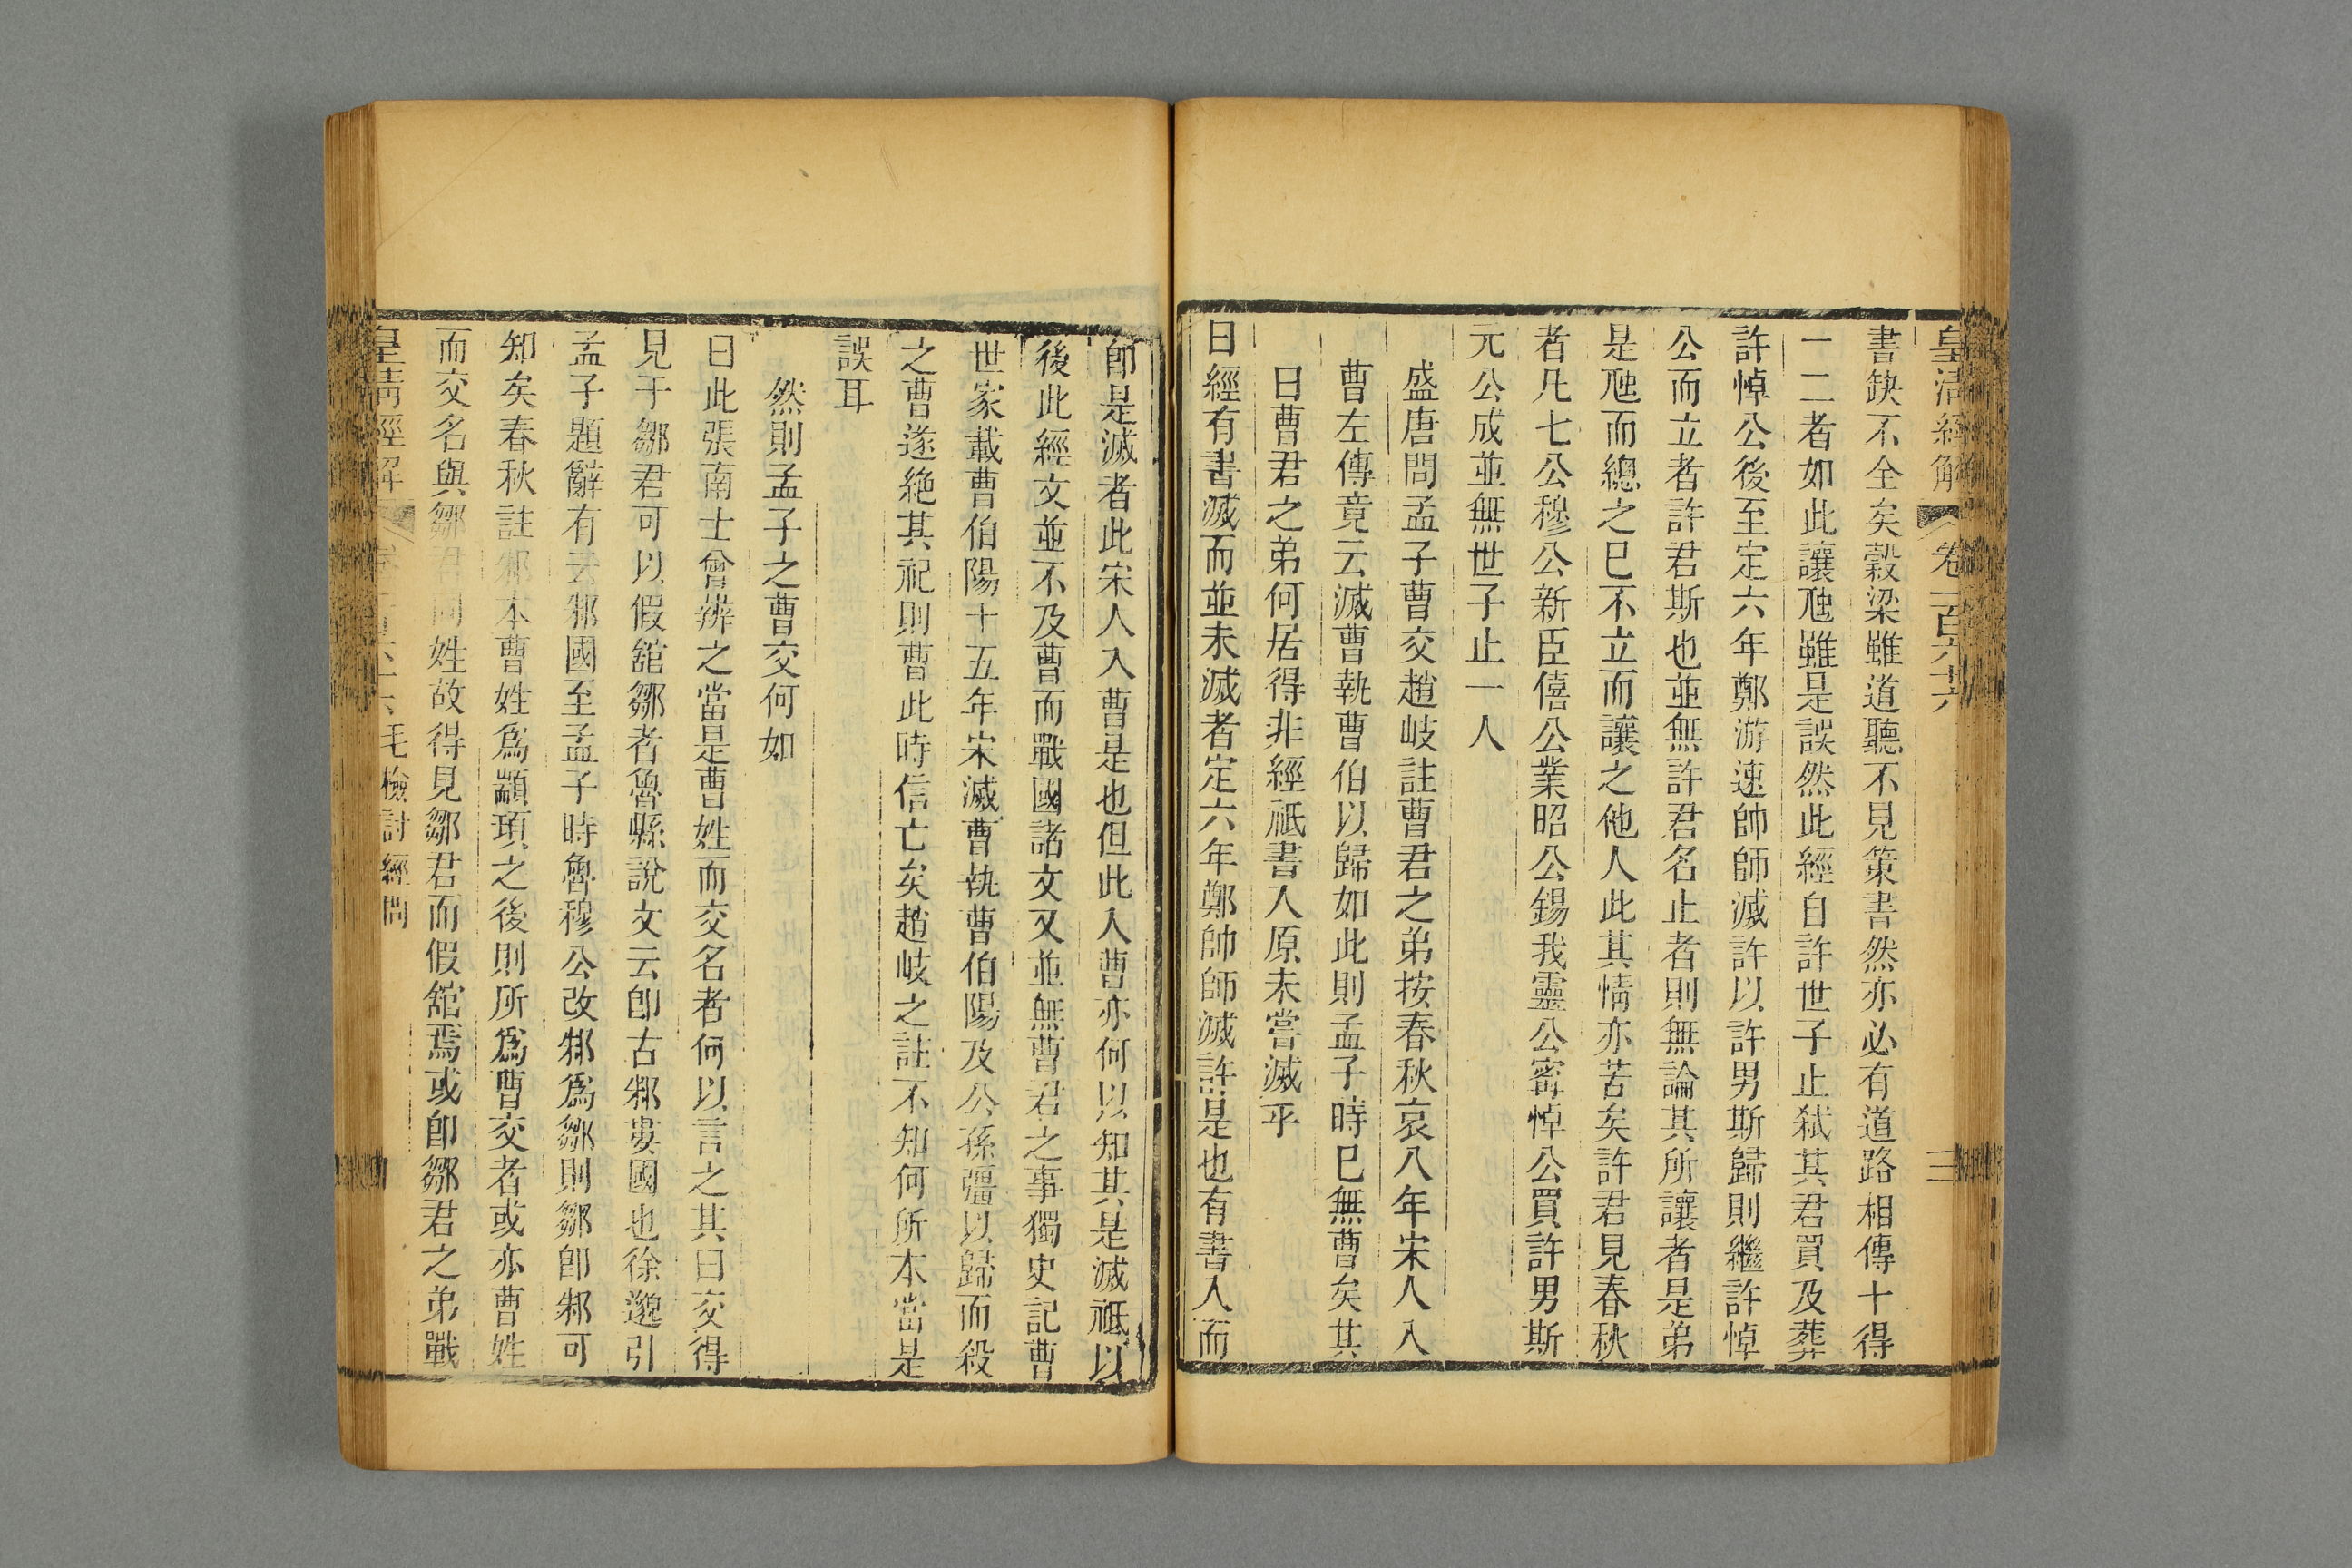 皇清經解 卷一百六十六 三
書缺不全矣穀梁雖道聽不見策書然亦必有道路相傳十得
一二者如此讓虺雖是誤然此經自許世子止弒其君買及葬
許悼公後至定六年鄭游速帥師滅許以許男斯歸則繼許悼
公而立者許君斯也並無許君名止者則無論其所讓者是弟
是虺而總之巳不立而讓之他人此其情亦苦矣許君見春秋
者凡七公穆公新臣僖公業昭公錫我靈公甯悼公買許男斯
元公成並無世子止一人
盛唐問孟子曹交趙岐註曹君之弟按春秋哀八年宋人入
曹左傳竟云滅曹執曹伯以歸如此則孟子時巳無曹矣其
曰曹君之弟何居得非經祗書入原未嘗滅乎
曰經有書滅而並未滅者定六年鄭帥師滅許是也有書入而
卽是滅者此宋人入曹是也但此入曹亦何以知其是滅祗以
後此經文並不及曹而戰國諸文又並無曹君之事獨史記曹
世家載曹伯陽十五年宋滅曹執曹伯陽及公孫彊以歸而殺
之曹遂絶其祀則曹此時信亡矣趙岐之註不知何所本當是
誤耳
然則孟子之曹交何如
曰此張南士曾辨之當是曹姓而交名者何以言之其曰交得
見于鄒君可以假舘鄒者魯縣說文云卽古邾婁國也徐邈引
孟子題辭有云邾國至孟子時魯穆公改邾爲鄒則鄒卽邾可
知矣春秋註邾本曹姓爲顓頊之後則所爲曹交者或亦曹姓
而交名與鄒君同姓故得見鄒君而假舘焉或卽鄒君之弟戰
皇清經解 毛檢討經問